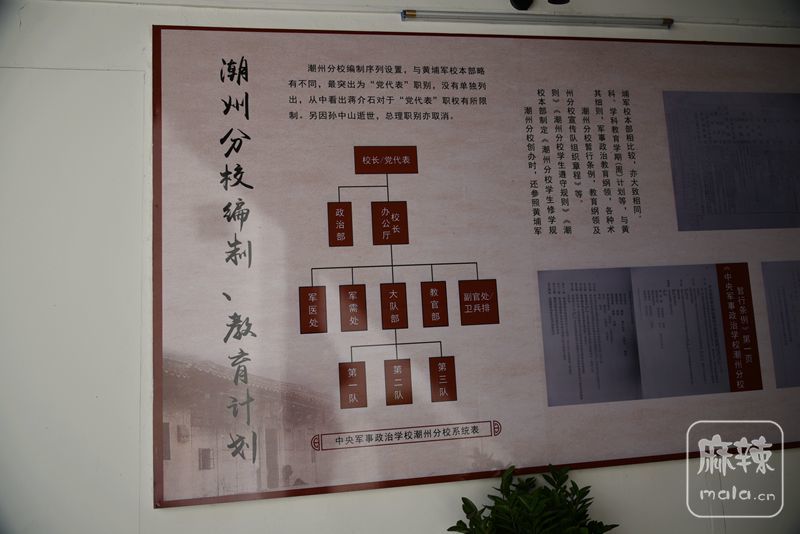 潮州分校编制、教育计划
潮州分校编制序列设置，与黄埔军校本部略
有不同，最突出为“党代表”职别，没有单独列
出，从中看出蒋介石对于“党代表”职权有所限
制。另因孙中山逝世，总理职别亦取消。
校长/党代表
政治部
校长
办公厅
军医处
军需处
大队部
教官部
副官处/
卫兵排
第一队
第二队
第三队
中央军事政治学校潮州分校系统表
潮州分校创办时，还参照黄埔军
校本部制定《潮州分校学生修学规
则》《潮州分校学生遵守规则》《潮
州分校宣传队组织章程》等。
潮州分校暂行条例，教育纲领及
其细则，军事政治教育纲领，各种术
科、学科教育学期（周）计划等，与黄
埔军校本部相比较，亦大致相同。
《中央军事政治学校潮州分校
暂行条例》第一页
麻辣
mala.cn